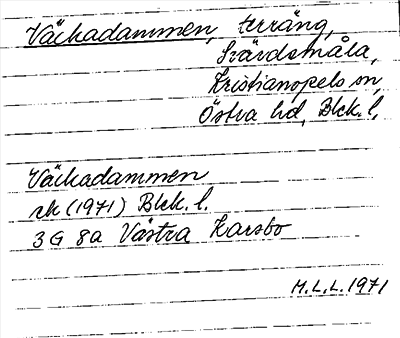 Väckadammen, terräng,
Svärdsmåla,
Kristianopels sn,
Östra hd, Blek. l.
Väckadammen
ek (1971) Blek. l.
3 G 8a Västra Karsbo
M.L.L. 1971